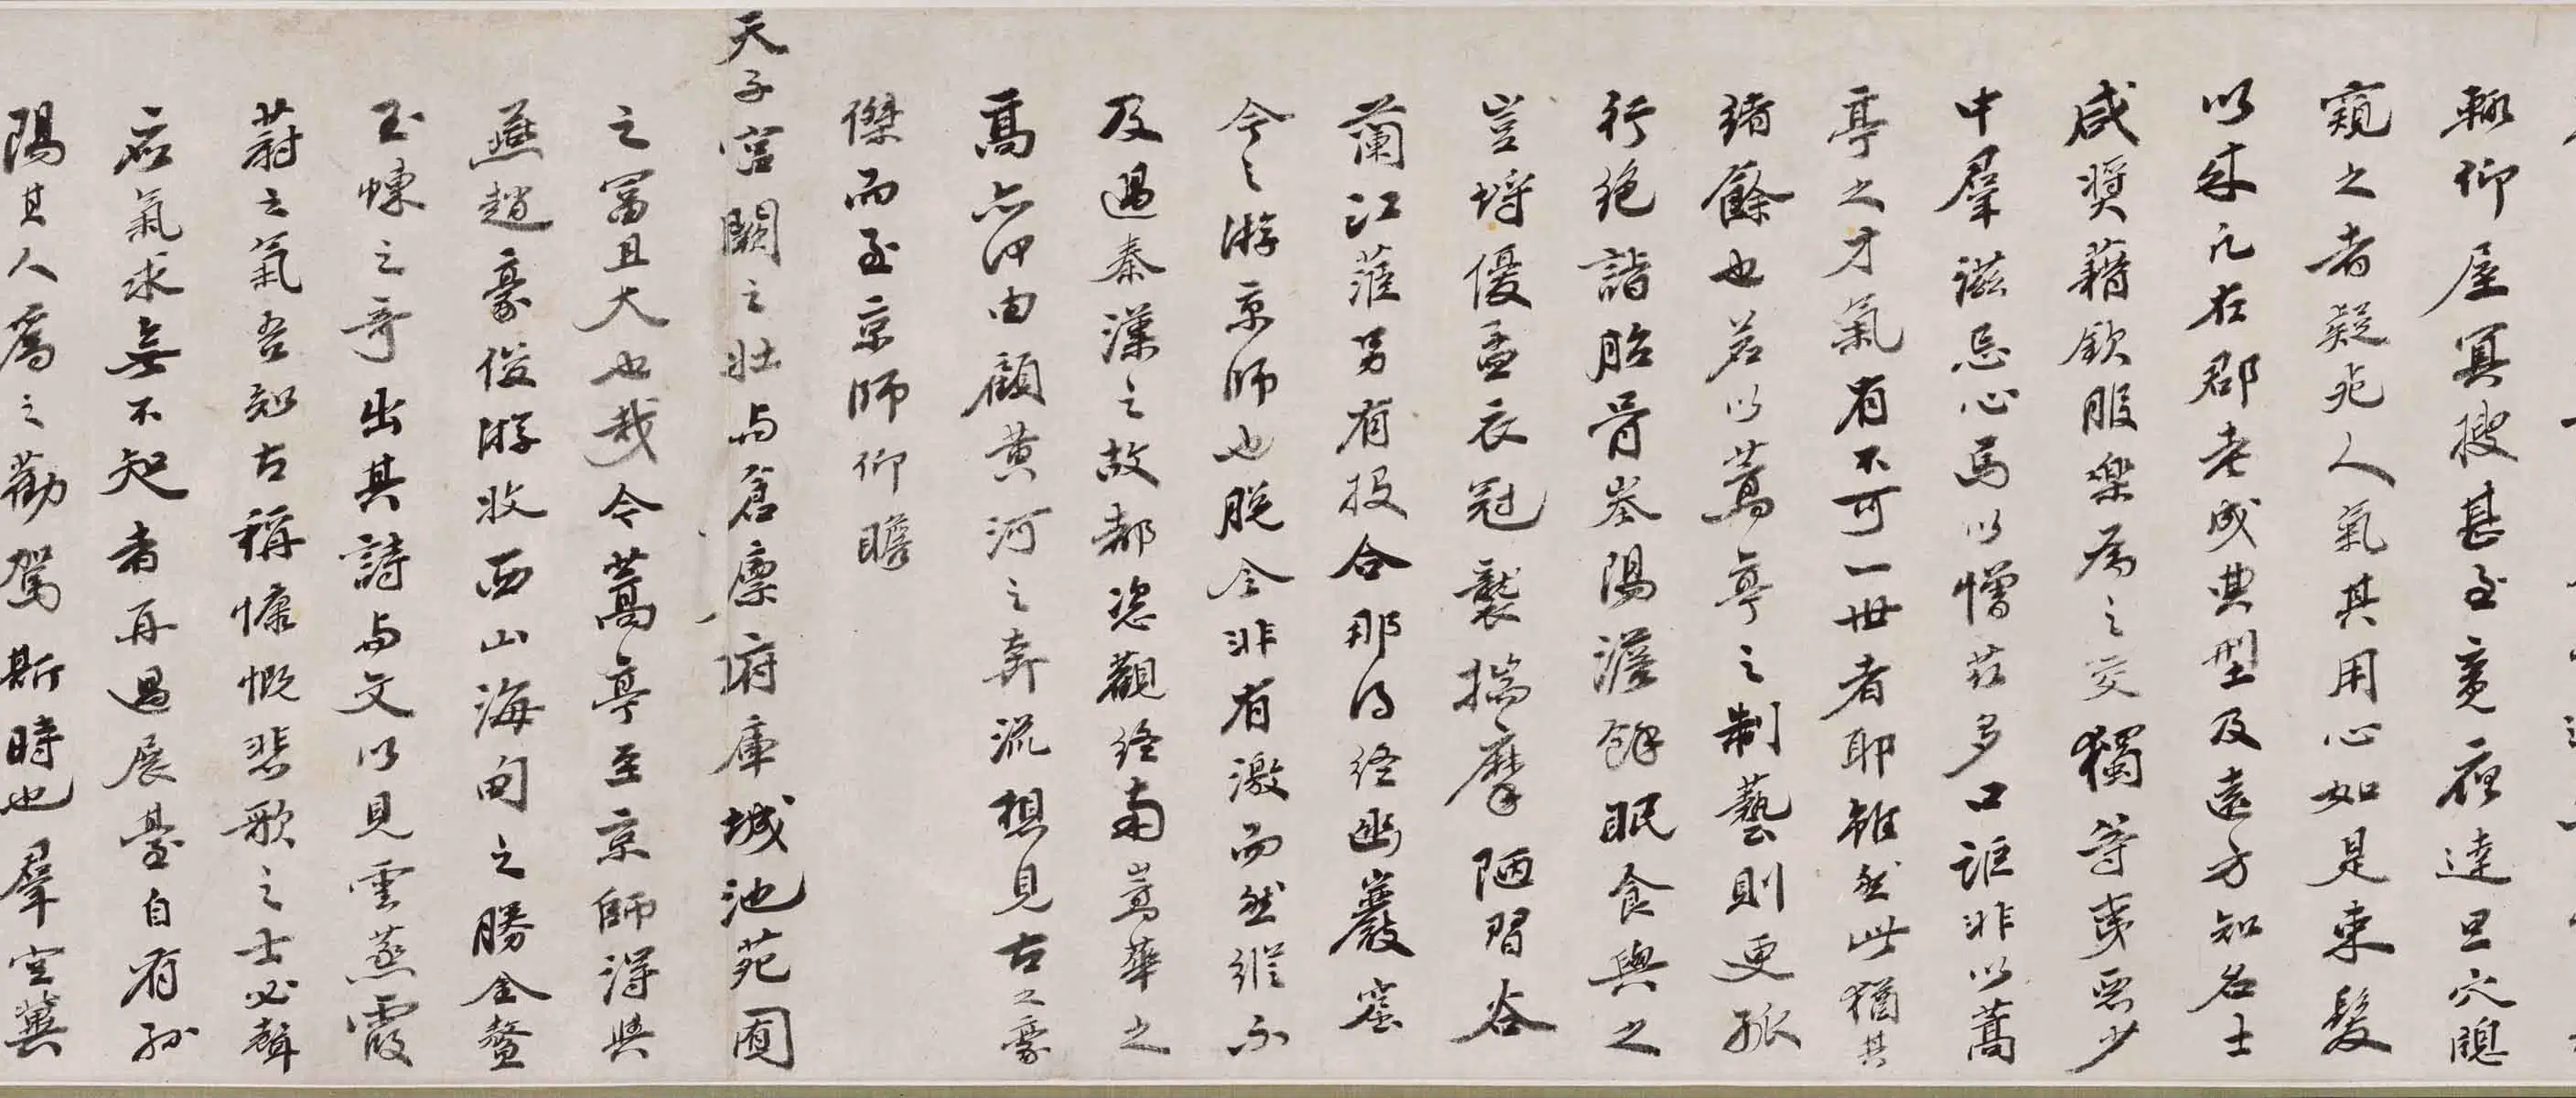 輙仰屋冥搜甚至竟夜達旦穴牕
窺之者疑死人氣其用心如是束髮
以來凡在郡老成典型及遠方知名士
咸奨藉欽服樂為之交獨等夷惡少
中羣滋忌心焉以憎茲多口詎非以蒿
亭之才氣有不可一世者耶雖然此猶其
緒餘也若以蒿亭之制藝則更孤
行絶詣胎骨峚陽澹餘眠食與之
豈塒優孟衣冠襲揣摩陋習谷
蘭江蓷另有投合那得終幽巖窟
今之游京師也脱令非有激而然縱不
及過秦漢之故都恣觀終南嵩華之
髙亦必由顧黄河之奔流想見古之豪
傑而至京師仰瞻
天子宮闕之壯与倉廪府庫城池苑囿
之富且大也哉令蒿亭至京師得與
燕趙豪俊游收西山海甸之勝金鰲
玉蝀之奇出其詩与文以見雲蒸霞
蔚之氣吾知古稱慷慨悲歌之士必聲
應氣求無不知者再過展臺自有孫
陽其人為之勸駕斯時也羣空冀